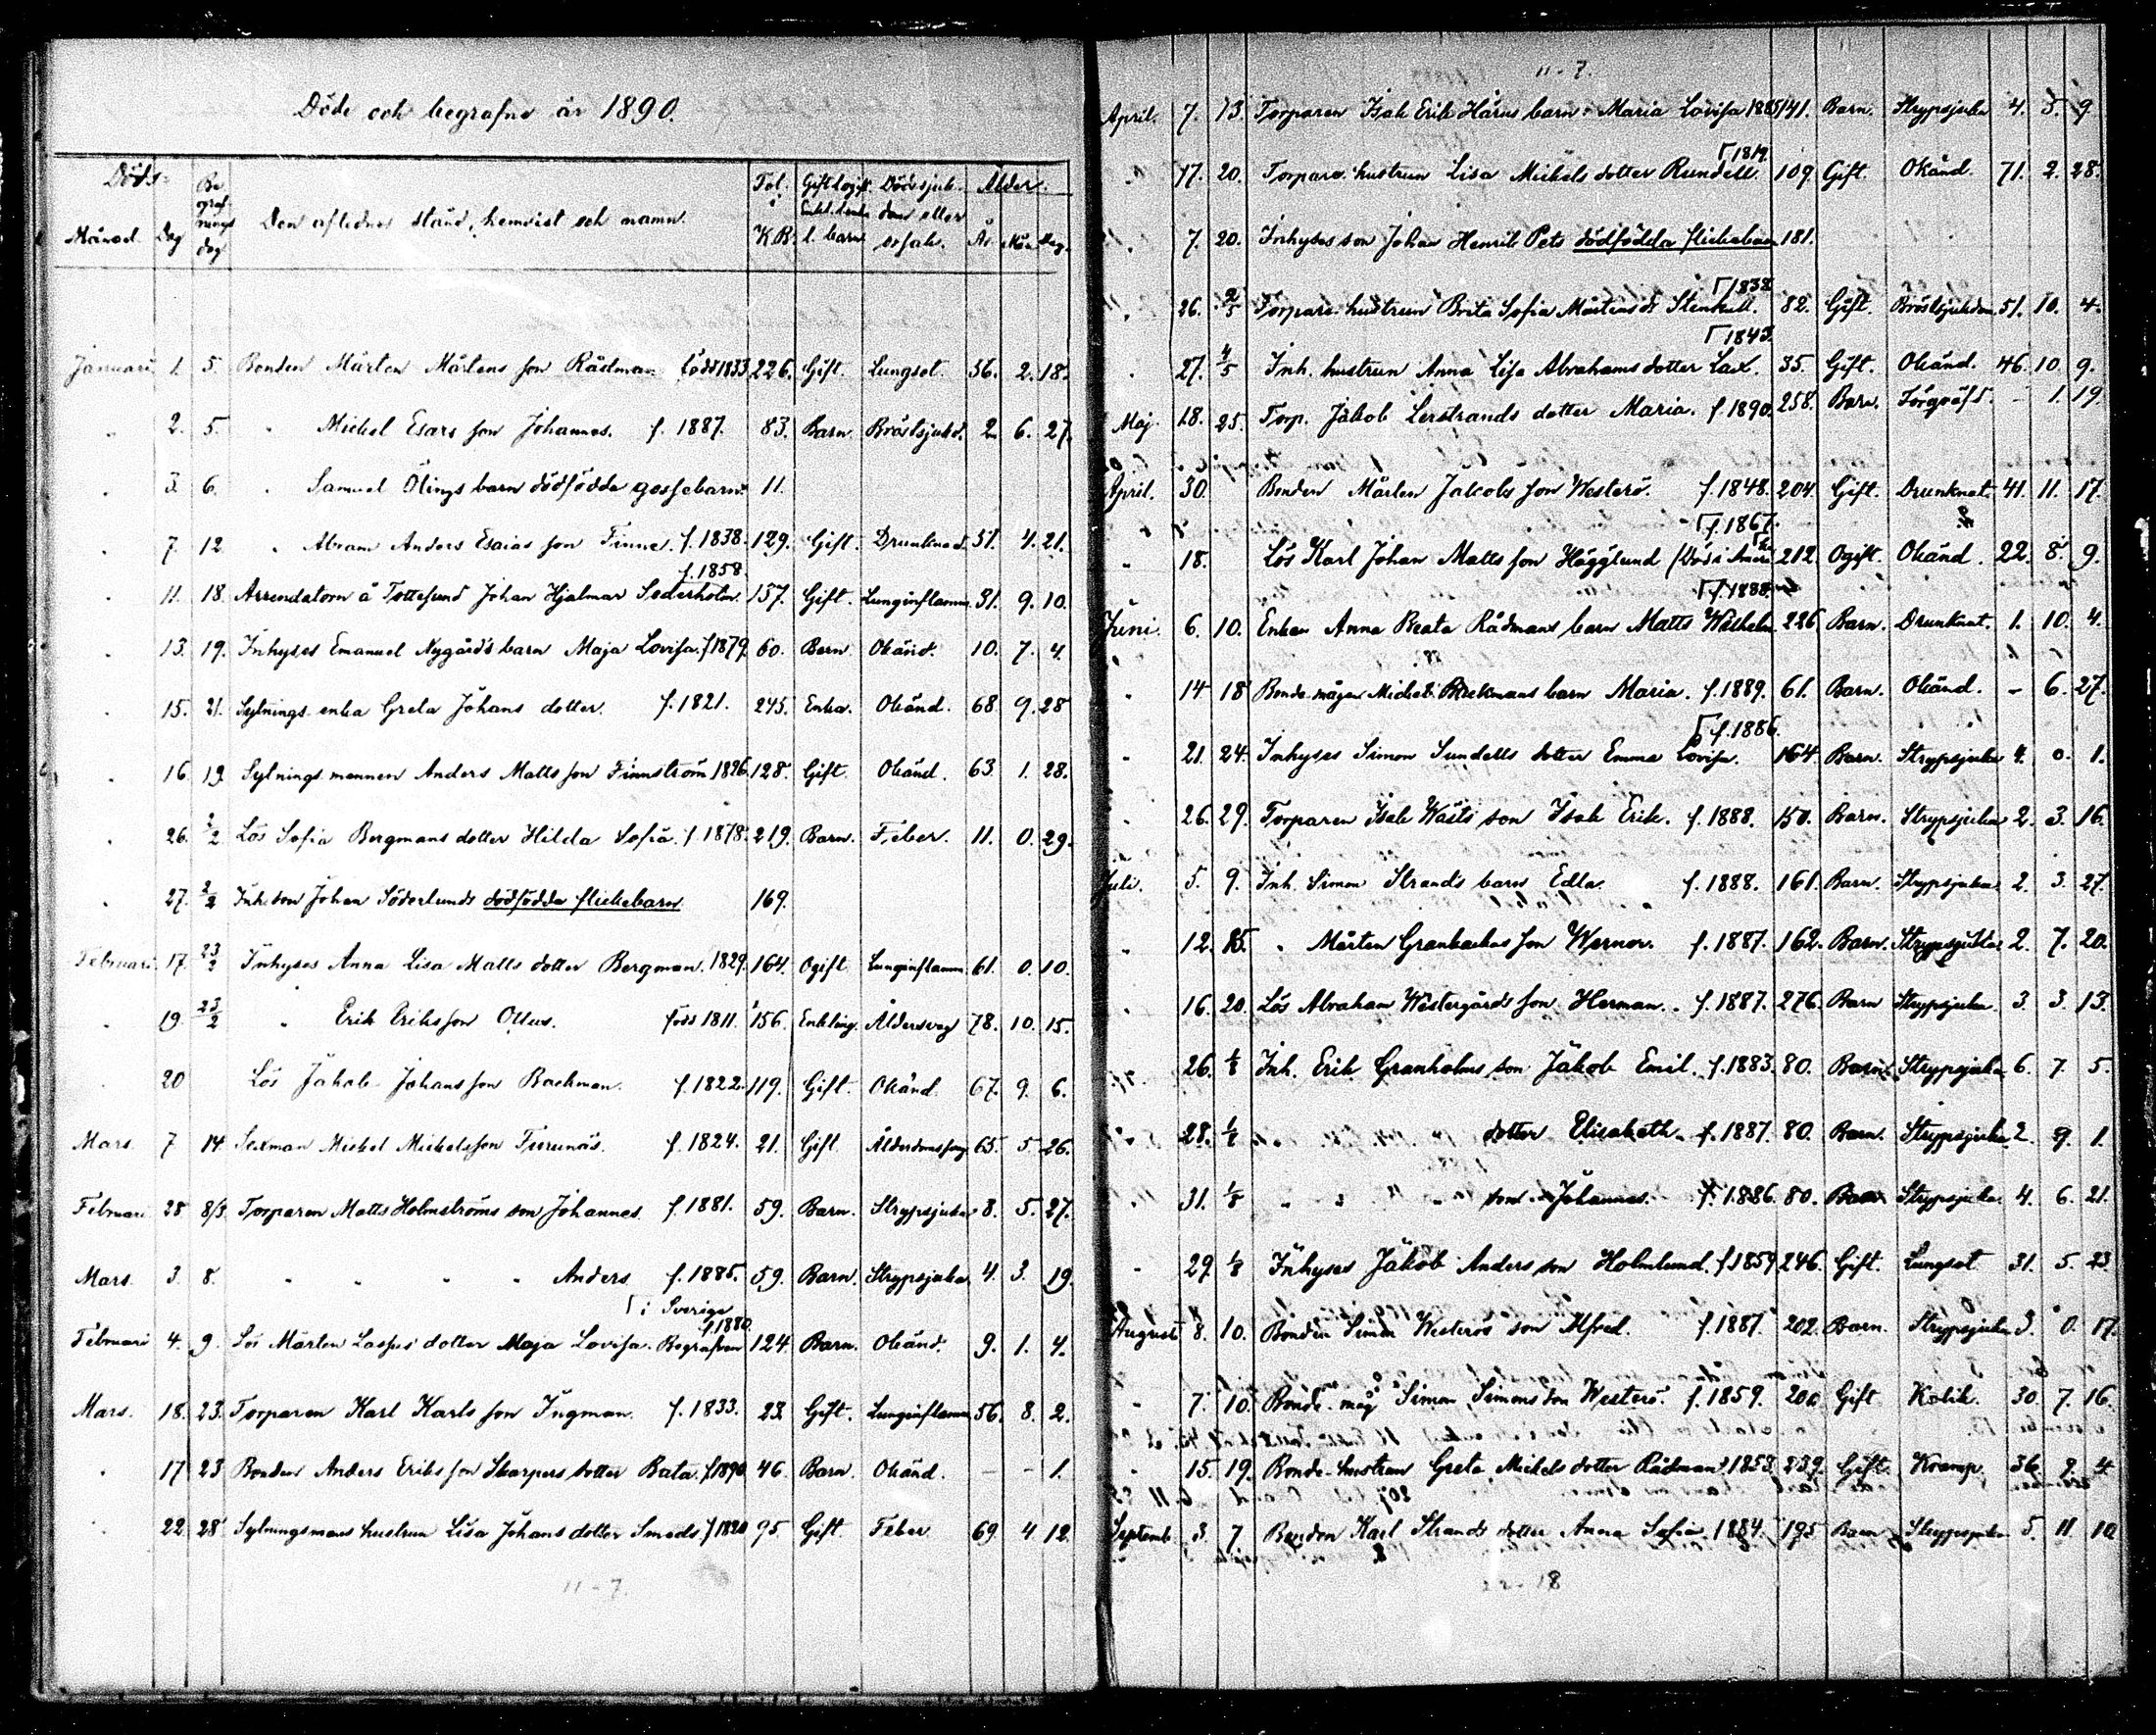 Döde och begrafne år 1890.
Döds-
Månad. Dag Begrafnings dag Den aflednes stånd, hemvist och namn. Fol. i K.B. Gift, ogift, enkl. enka l. barn Dödssjukdom eller orsak. Ålder. År. Mån. Dag.
Januari 1. 5. Bonden Mårten Mårtens son Rådman född 1833 226. Gift. Lungsot. 56. 2. 18.
" 2. 5. " Mickel Esars son Johannes. f. 1887. 83. Barn. Bröstsjukd. 2. 6. 27.
" 3. 6. " Samuel Ölings barn dödfödda gossebarn. 11.
" 7. 12. " Abram Anders Esaias son Finne. f. 1838. 129. Gift. Drunknad. 51. 4. 21.
f. 1858.
" 11. 18. Arrendatorn å Tottesund Johan Hjalmar Sederholm. 157. Gift. Lunginflamm. 31. 9. 10.
" 13. 19. Inhyses Emanuel Nygårds barn Maja Lovisa. f 1879. 60. Barn. Okänd. 10. 7. 4.
" 15. 21. Sytnings enka Greta Johans dotter. f. 1821. 245. Enka. Okänd. 68. 9. 28
" 16. 19. Sytnings mannen Anders Matts son Finnström 1826. 128. Gift. Okänd. 63. 1. 28.
" 26. 2/2 Lös Sofia Bergmans dotter Hilda Sofia. f 1878. 219. Barn. Feber. 11. 0. 29.
" 27. 2/2 Inh. son Johan Söderlunds dödfödda flickebarn 169.
Februari 17. 23/2 Inhyses Anna Lisa Matts dotter Bergman. 1829. 164. Ogift Lunginflamm. 61. 0. 10.
" 19. 23/2 " Erik Eriksson Ollus. född 1811. 156. Enkling. Åldersvag 78. 10. 15.
" 20 Lös Jakob Johans son Backman. f. 1822. 119. Gift. Okänd. 67. 9. 6.
Mars 7 14 Sexman Mickel Mickelsson Furunäs. f. 1824. 21. Gift. 65. 5 26.
Februari 28 8/3. Torparen Matts Holmströms son Johannes f. 1881. 59. Barn. Strypsjuka 8. 5. 27.
Mars. 3. 8. " " " " Anders f. 1885. 59. Barn. Strypsjuka 4. 3. 19.
i Sverige f 1880.
Februari 4. 9. Lös Mårten Laspus dotter Maja Lovisa. Begrafven 124. Barn. Okänd. 9. 1. 4.
Mars. 18. 23. Torparen Karl Karls son Ingman. f. 1833. 23. Gift. Lunginflamm. 56. 8. 2.
" 17 23 Bonden Anders Eriks son Skarpers dotter Beata. f 1890 46. Barn. Okänd. - - 1.
" 22. 28 Sytningsmans hustrun Lisa Johans dotter Smeds. f 1820 95. Gift. Feber. 69. 4 12.
11-7.
11-7.
April. 7. 13. Torparen Isak Erik Härus barn Maria Lovisa 1885 141. Barn. Strypsjuka 4. 9.
1819.
" 17. 20. Torpare hustrun Lisa Mickels dotter Rundell. 109. Gift. Okänd. 71. 2. 28.
" 7. 20. Inhyses son Johan Henrik Pets dödfödda flickebarn 181.
1838.
" 26. 2/5 Torpare hustrun Brita Sofia Mårtens dr Stenkull. 82. Gift. Bröstsjukdom. 51. 10. 4.
1843.
" 27. 4/5 Inh. hustrun Anna Lisa Abrahams dotter Lax. 35. Gift. Okänd. 46. 10. 9.
Maj. 18. 25. Torp. Jakob Lerstrands dotter Maria. f. 1890. 258. Barn. - 1. 19.
April. 30. Bonden Mårten Jakobs son Westerö. f. 1848. 204. Gift. Drunknat. 41. 11. 17.
f. 1867.
" 18. Lös Karl Johan Matts son Hägglund (död i Amerika 212. Ogift. Okänd. 22. 8. 9.
f. 1888.
Juni. 6. 10. Enkan Anna Beata Rådmans barn Matts Wilhelm. 226 Barn. Drunknat. 1. 10. 4.
" 14 18 Bonde mågen Mickel Backmans barn Maria. f. 1889. 61. Barn. Okänd. - 6. 27.
f. 1886.
" 21. 24. Inhyses Simon Sundells dotter Emma Lovisa. 164 Barn. Strypsjuka 4. 0. 1.
" 26. 29. Torparen Isak Wästs son Isak Erik. f. 1888. 150. Barn. Strypsjuka 2. 3. 16.
Juli. 5. 9. Inh. Simon Strands barn Edla. f. 1888. 161. Barn. Strypsjuka 2. 3. 27.
" 12. 15. " Mårten Granbackas son Werner. f. 1887. 162. Barn. Strypsjuka 2. 7. 20.
" 16. 20. Lös Abraham Westergårds son Herman. f. 1887. 276. Barn Strypsjuka 3. 3. 13.
" 26. 1/8 Inh. Erik Granholms son Jakob Emil. f. 1883. 80. Barn. Strypsjuka 6. 7. 5.
" 28. 1/8 " " " dotter Elisabeth. f. 1887. 80. Barn. Strypsjuka 2. 9. 1.
" 31. 1/8 " " " son Johannes. f. 1886. 80. Barn Strypsjuka. 4. 6. 21.
" 29. 1/8 Inhyses Jakob Anders son Holmlund. f 1859 246. Gift. Lungsot 31. 5. 23
Augusti 8. 10. Bonden Simon Westerös son Alfred. f. 1887. 202. Barn. Strypsjuka 3. 0. 17.
" 7. 10. Bonde måg Simon Simons son Westerö. f. 1859. 200. Gift Kolik. 30. 7. 16.
" 15. 19. Bonde-hustrun Greta Mickels dotter Rådman. 1853. 239. Gift. Kramp. 36. 9. 4.
Septemb. 3. 7. Bonden Karl Strands dotter Anna Sofia. 1884. 195 Barn Strypsjuka 5. 11. 10